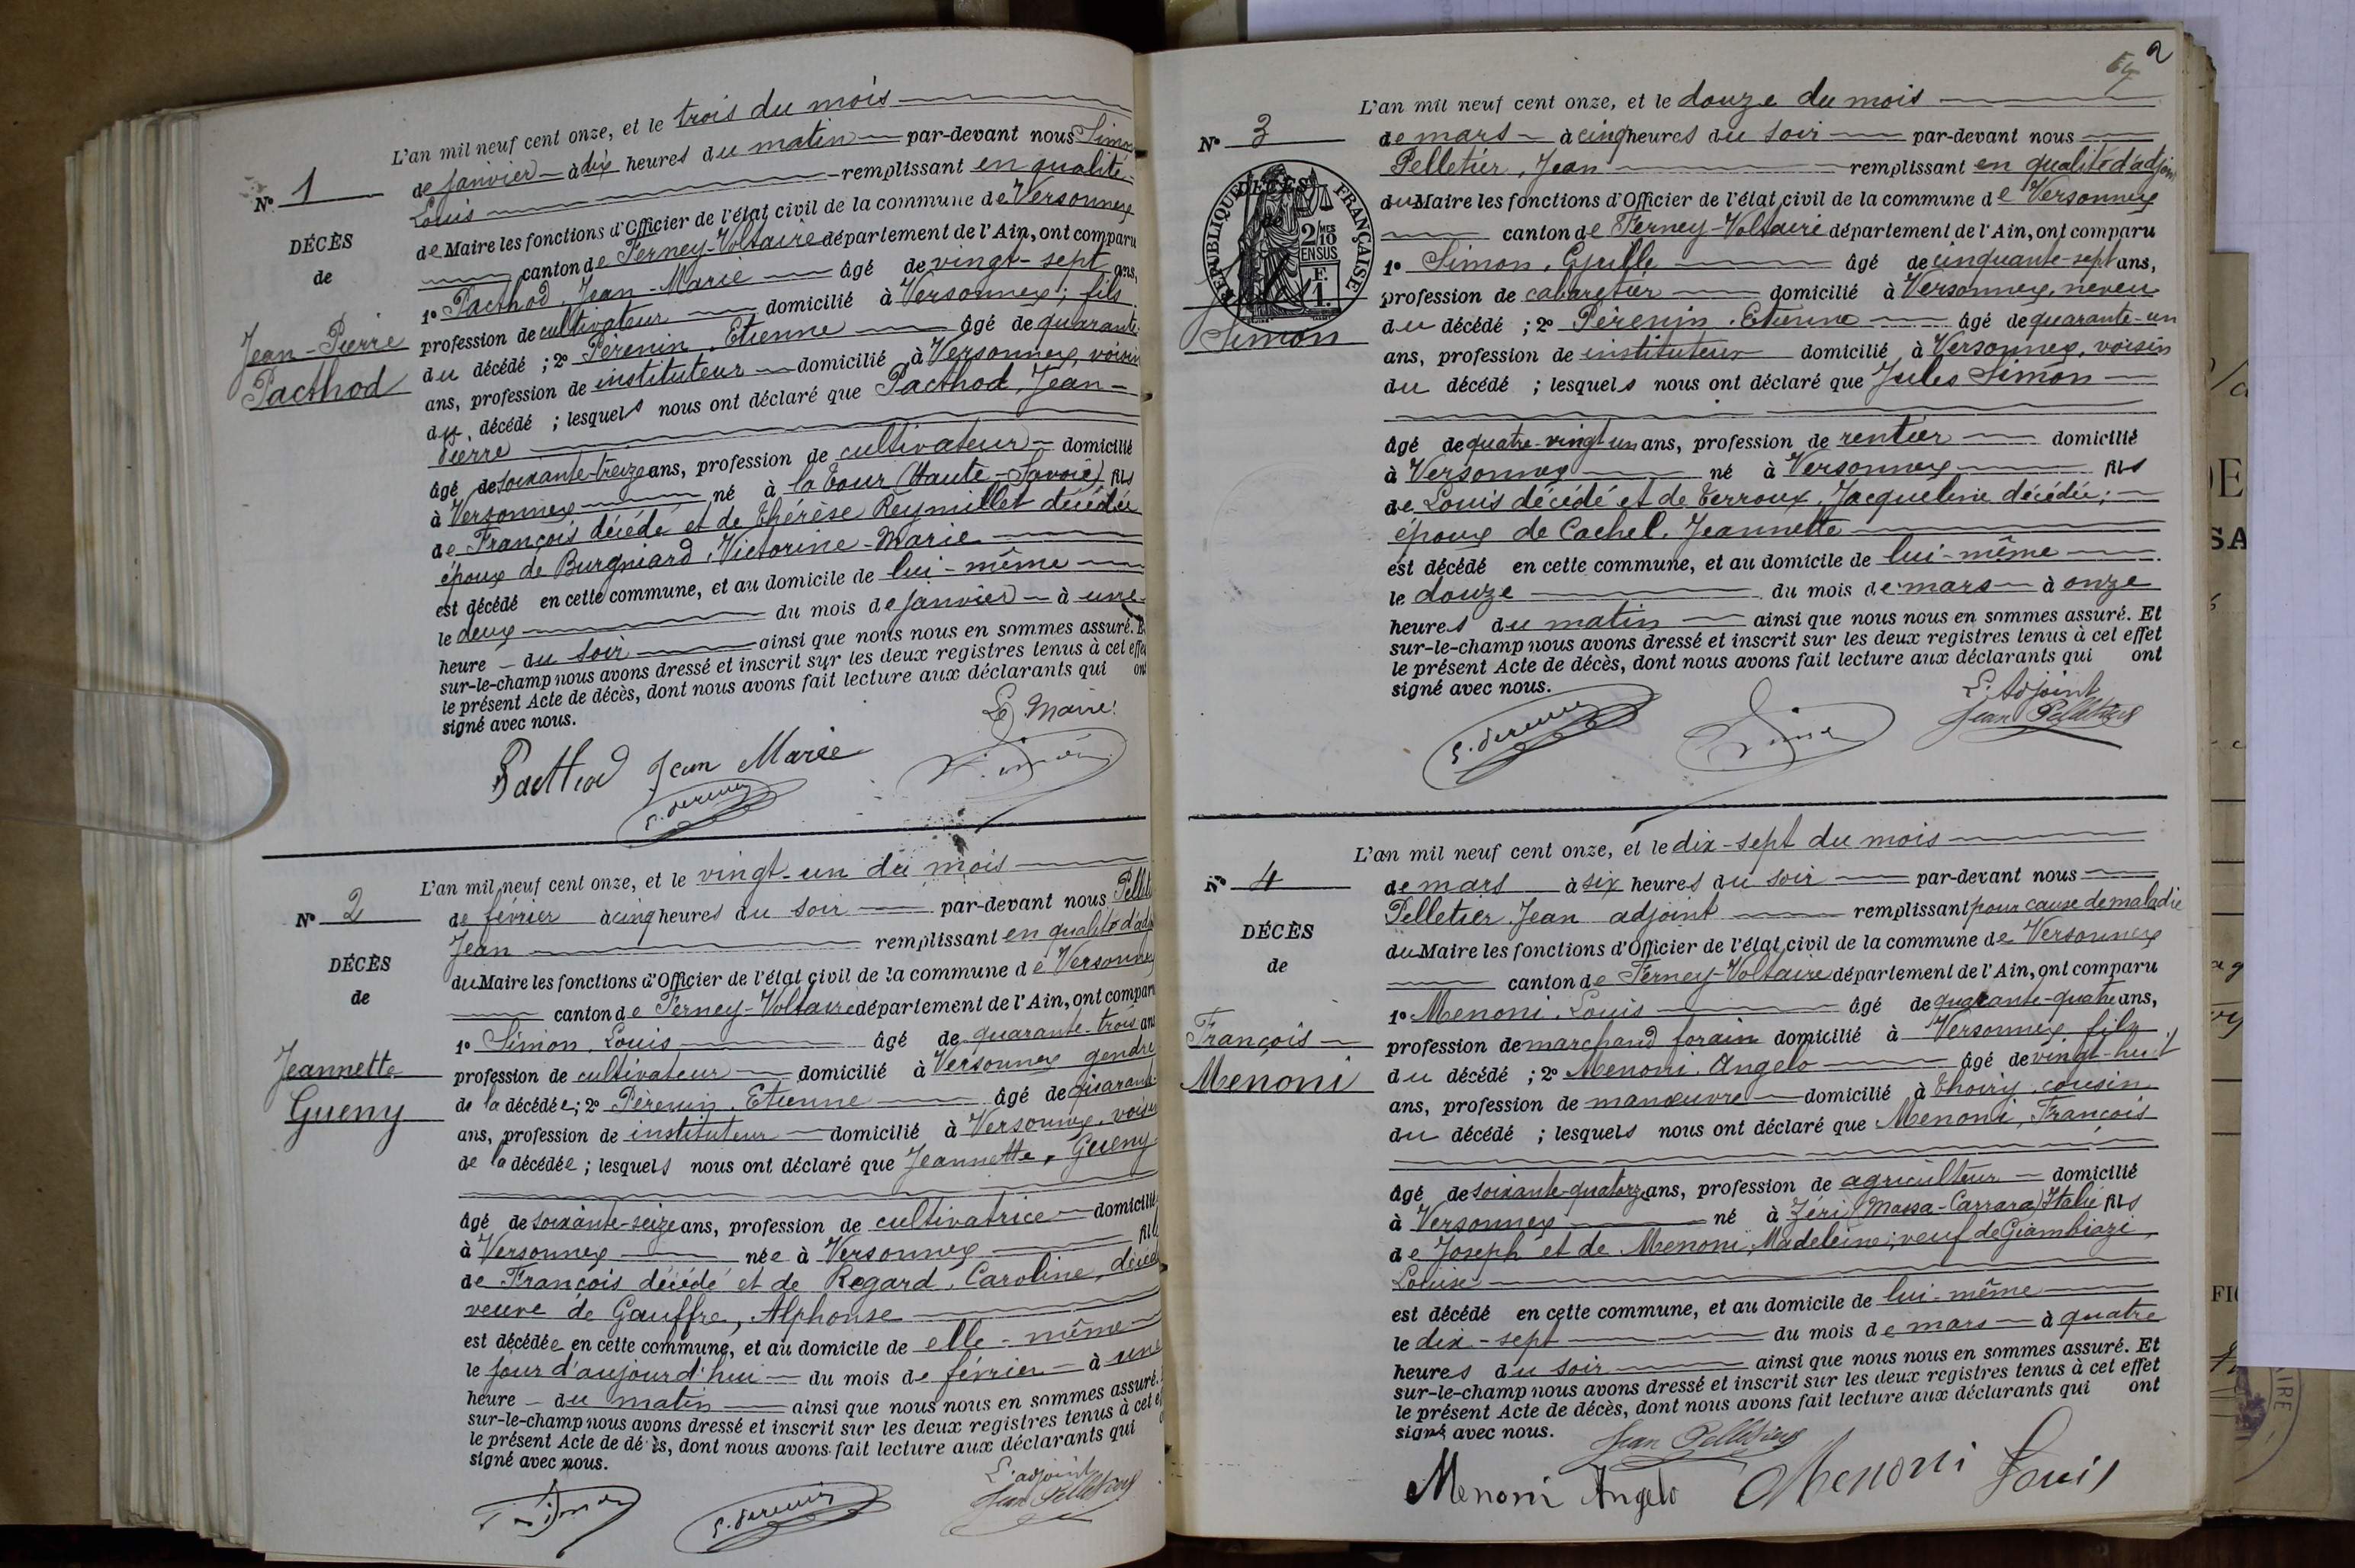 L'an mil neuf cent onze, et le trois du mois
N° 1
de janvier à dix heures du matin par-devant nous Simon
Louis remplissant en qualité
DÉCÈS
de Maire les fonctions d'Officier de l'état civil de la commune de Versonnex
de
canton de Ferney-Voltaire département de l'Ain, ont comparu
1° Pacthod, Jean-Marie âgé de vingt-sept ans,
Jean-Pierre
profession de cultivateur domicilié à Versonnex; fils
Pacthod
du décédé ; 2° Pérenin, Etienne âgé de quarante
ans, profession de instituteur domicilié à Versonnex, voisin
du décédé ; lesquels nous ont déclaré que Pacthod, Jean-
Pierre
âgé de soixante-treize ans, profession de cultivateur domicilié
à Versonnex né à la Tour (Haute-Savoie) fils
de François décédé et de Thérèse Reymillet décédée
époux de Burgniard, Victorine-Marie
est décédé en cette commune, et au domicile de lui-même
le deux du mois de janvier à une
heure du soir ainsi que nous nous en sommes assuré. Et
sur-le-champ nous avons dressé et inscrit sur les deux registres tenus à cet effet
le présent Acte de décès, dont nous avons fait lecture aux déclarants qui ont
signé avec nous.
Le Maire:
Pacthod Jean Marie
E. Perenin
L. Simon
L'an mil neuf cent onze, et le vingt-un du mois
N° 2
de février à cinq heures du soir par-devant nous Pellet
Jean remplissant en qualité d'adj
DÉCÈS
du Maire les fonctions d'Officier de l'état civil de la commune de Versonnex
de
canton de Ferney-Voltaire département de l'Ain, ont comparu
1° Simon, Louis âgé de quarante-trois ans
Jeannette
profession de cultivateur domicilié à Versonnex gendre
Gueny
de la décédée ; 2° Pérenin, Etienne âgé de quarante-
ans, profession de instituteur domicilié à Versonnex, voisin
de la décédée ; lesquels nous ont déclaré que Jeannette, Gueny
âgé de soixante-seize ans, profession de cultivatrice domicilié
à Versonnex née à Versonnex fil
de François décédé et de Regard, Caroline, décéd
veuve de Gauffre, Alphonse
est décédée en cette commune, et au domicile de elle-même
le jour d'aujourd'hui du mois de février à une
heure du matin ainsi que nous nous en sommes assuré.
sur-le-champ nous avons dressé et inscrit sur les deux registres tenus à cet ef
le présent Acte de décès, dont nous avons fait lecture aux déclarants qui
signé avec nous.
L'adjoint
Jean Pelletier
E. Perenin
2
L'an mil neuf cent onze, et le douze du mois
N° 3
de mars à cinq heures du soir par-devant nous
Pelletier, Jean remplissant en qualité d'adjoint
DÉCÈS
du Maire les fonctions d'Officier de l'état civil de la commune de Versonnex
de
RÉPUBLIQUE FRANÇAISE
2/10MES
EN SUS
F.
1.
canton de Ferney-Voltaire département de l'Ain, ont comparu
1° Simon, Cyrille âgé de cinquante-sept ans,
profession de cabaretier domicilié à Versonnex, neveu
Simon
du décédé ; 2° Pérenin, Etienne âgé de quarante-un
ans, profession de instituteur domicilié à Versonnex, voisin
du décédé ; lesquels nous ont déclaré que Jules Simon
âgé de quatre-vingt-un ans, profession de rentier domicilié
à Versonnex né à Versonnex fils
de Louis décédé et de Terroux, Jacqueline décédée;
époux de Cachel, Jeannette
est décédé en cette commune, et au domicile de lui-même
le douze du mois de mars à onze
heures du matin ainsi que nous nous en sommes assuré. Et
sur-le-champ nous avons dressé et inscrit sur les deux registres tenus à cet effet
le présent Acte de décès, dont nous avons fait lecture aux déclarants qui ont
signé avec nous.
L'Adjoint
Jean Pelletier
E. Perenin
Simon
L'an mil neuf cent onze, et le dix-sept du mois
N° 4
de mars à six heures du soir par-devant nous
Pelletier Jean adjoint remplissant pour cause de maladie
DÉCÈS
du Maire les fonctions d'Officier de l'état civil de la commune de Versonnex
de
canton de Ferney-Voltaire département de l'Ain, ont comparu
1° Menoni, Louis âgé de quarante-quatre ans,
François
profession de marchand forain domicilié à Versonnex fils
Menoni
du décédé ; 2° Menoni, Angelo âgé de vingt-huit
ans, profession de manœuvre domicilié à Thoiry cousin
du décédé ; lesquels nous ont déclaré que Menoni, François
âgé de soixante-quatorze ans, profession de agriculteur domicilié
à Versonnex né à Zéri (Massa-Carrara) Italie fils
de Joseph et de Menoni, Madeleine; veuf de Giambiazi,
Louise
est décédé en cette commune, et au domicile de lui-même
le dix-sept du mois de mars à quatre
heures du soir ainsi que nous nous en sommes assuré. Et
sur-le-champ nous avons dressé et inscrit sur les deux registres tenus à cet effet
le présent Acte de décès, dont nous avons fait lecture aux déclarants qui ont
signé avec nous.
Jean Pelletier
Menoni Angelo Menoni Louis